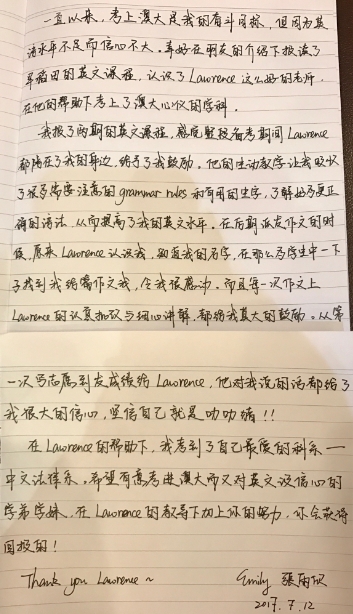 一直以來，考上澳大是我的奮斗目标，但因为英
语水平不足而信心不大。幸好在朋友的介绍下报读了
早稻田的英文课程，认识了Lawrence 这么好的老师，
在他的帮助下考上了澳大心仪的学科。
我报了两期的英文课程，感觉整段备考期间Lawrence
都陪在了我的身边，给予了我鼓励。他的生动教学让我吸收
了很多需要注意的grammar rules 和有用的生字，了解好多更正
确的语法，从而提高了我的英文水平。在后期派发作文的时
候，原来Lawrence认识我，知道我的名字，在那么多学生中一下
子找到我给篇作文我，令我很感动。而且每一次作文上
Lawrence的认真批改与细心讲解，都给我莫大的鼓励。从第
一次写志愿到发成绩给Lawrence，他对我说的话都给了
我很大的信心，坚信自己就是叻叻猪！！
在Lawrence的帮助下，我考到了自己最爱的科系—
中文法律系。希望有意考进澳大而又对英文没信心的
学弟学妹，在Lawrence的教导下加上你的努力，你会获得
回报的！
Thank you Lawrence ~
Emily 張雨欣
2017.7.12